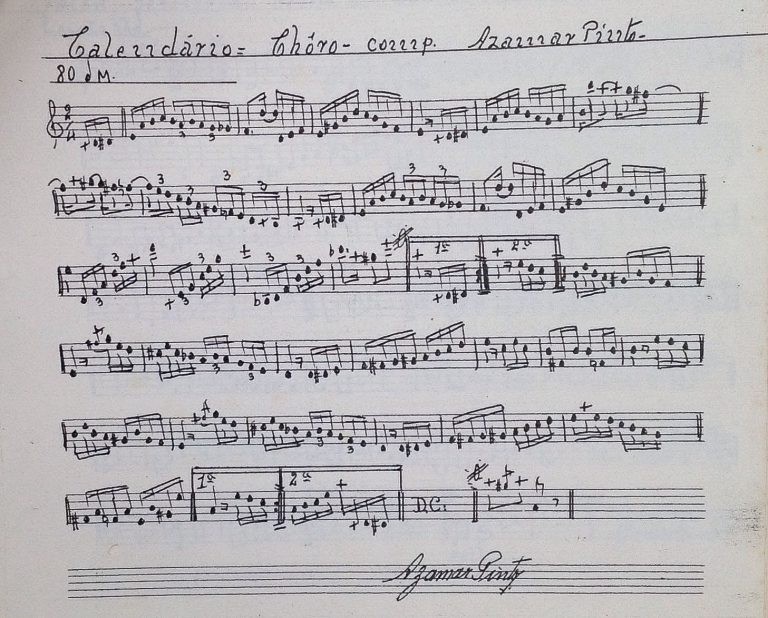 Calendário = Chôro - comp. Azamar Pinto -
80 dM.
2
4
3 3
3 3 3 3
3 3 3 1ª 2ª
3 3 3
3
3
3
1ª 2ª D.C.
Azamar Pinto